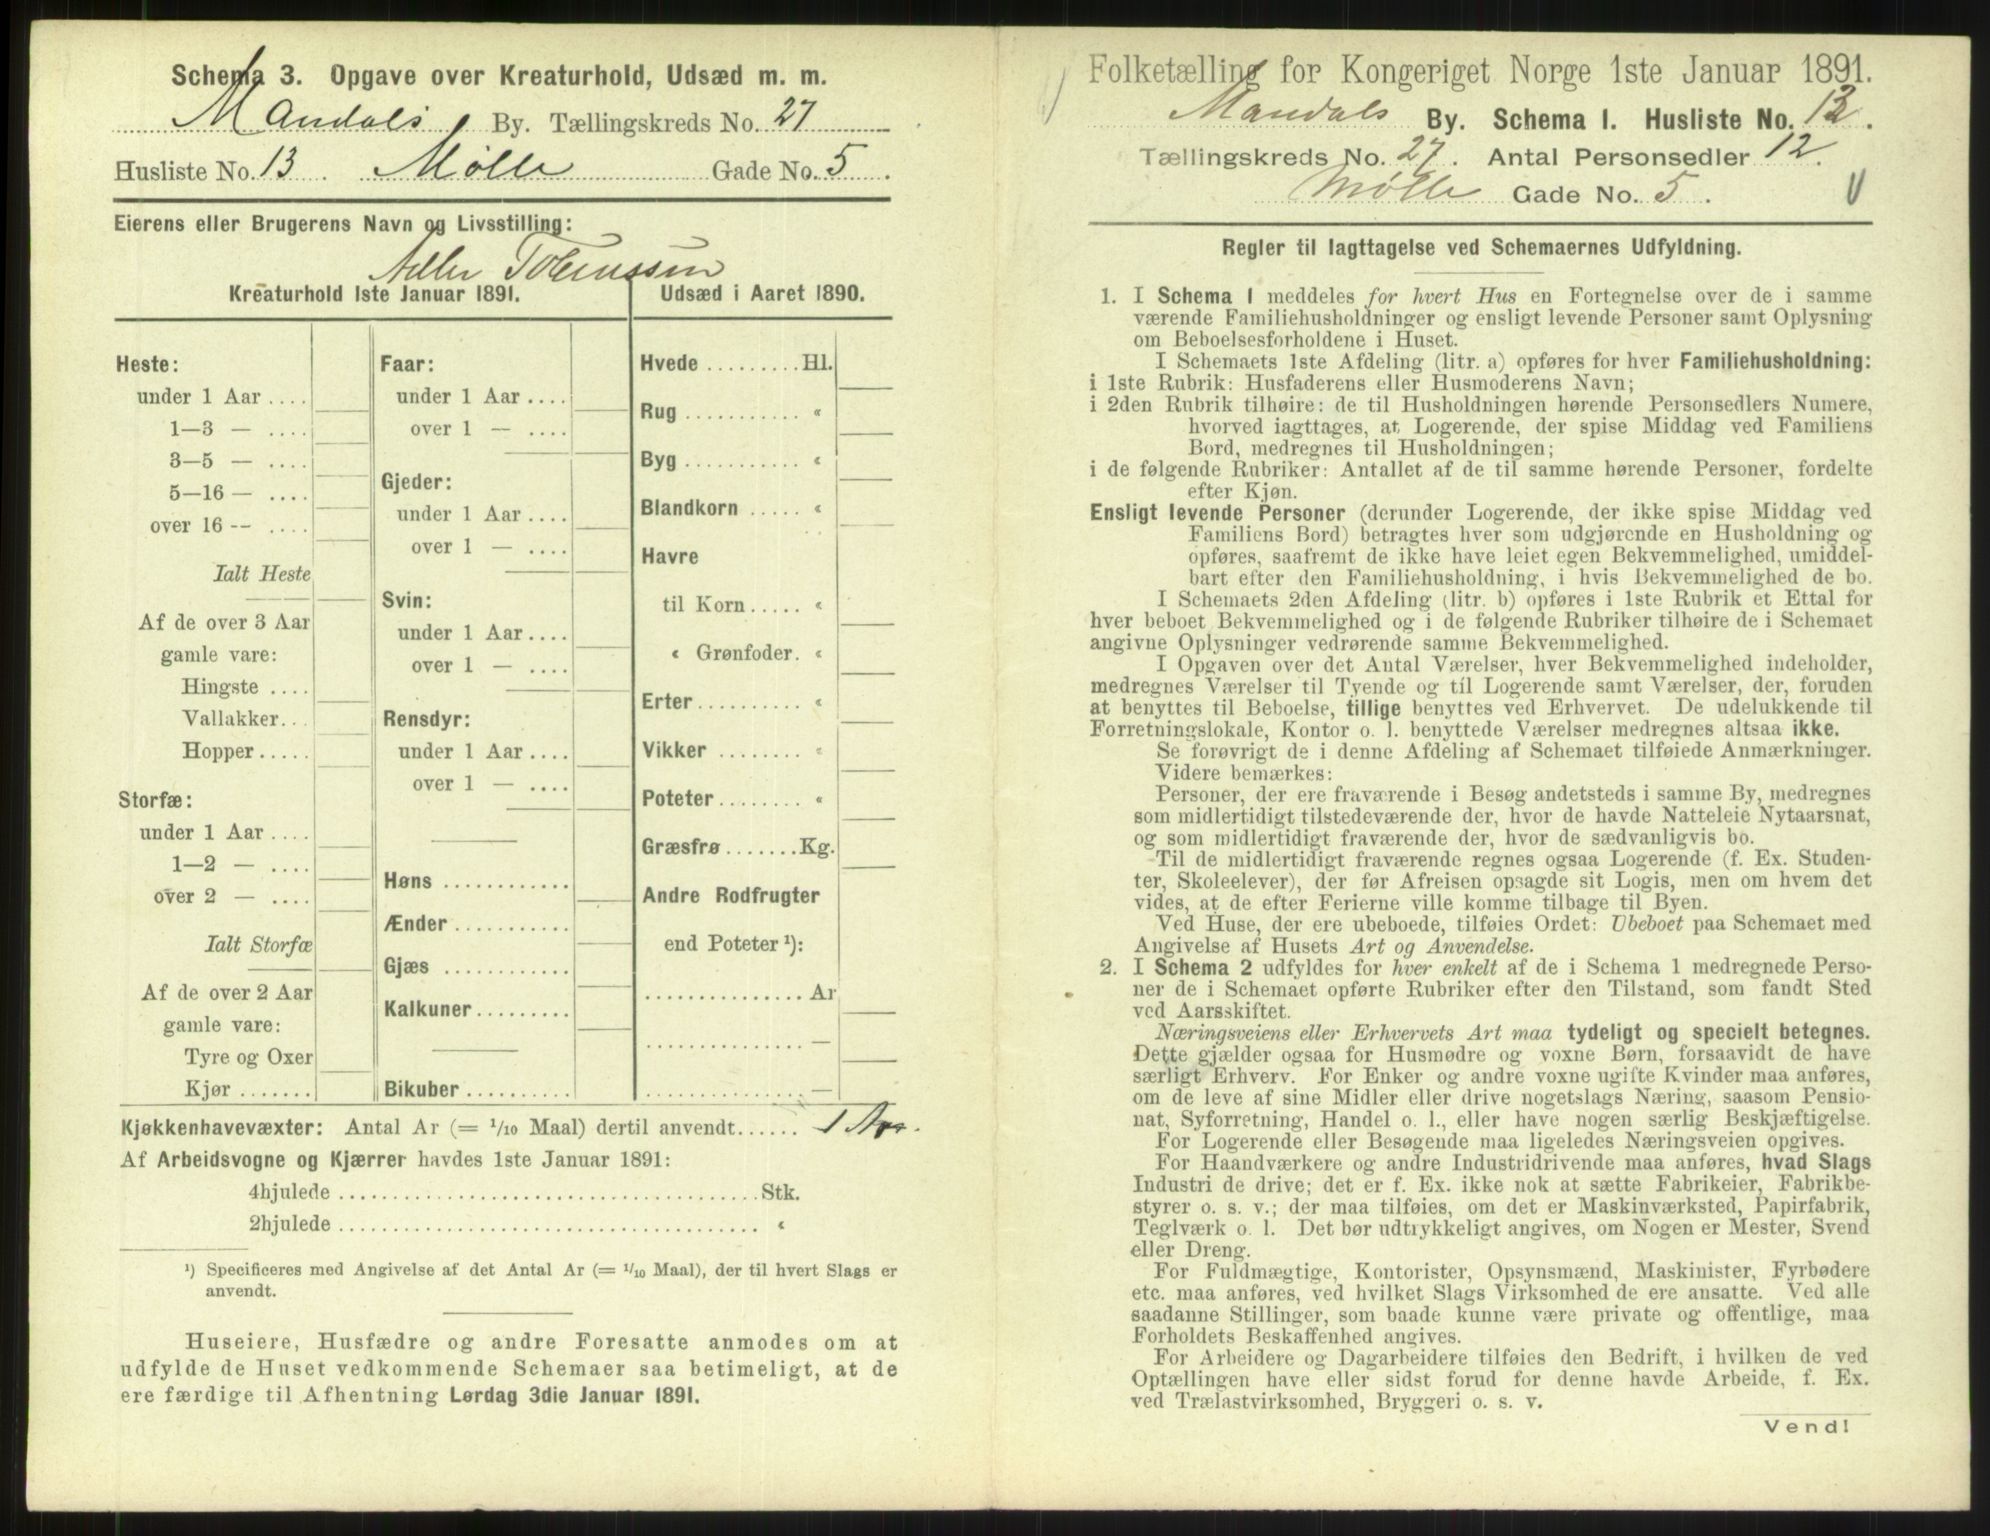 Schema 3. Opgave over Kreaturhold, Udsæd m. m.
Mandals By. Tællingskreds No. 27
Husliste No. 13 Mølle Gade No. 5.
Eierens eller Brugerens Navn og Livsstilling:
Kreaturhold 1ste Januar 1891.
Heste:
under 1 Aar ....
1—3 — ....
3—5 — ....
5—16 — ....
over 16 -- ....
Ialt Heste
Af de over 3 Aar
gamle vare:
Hingste ....
Vallakker...
Hopper.....
Storfæ:
under 1 Aar ....
1—2 — ....
over 2 — ....
Ialt Storfæ
Af de over 2 Aar
gamle vare:
Tyre og Oxer
Kjør .......
Faar:
under 1 Aar ....
over 1 — ....
Gjeder:
under 1 Aar ....
over 1 — ....
Svin:
under 1 Aar ....
over 1 — ....
Rensdyr:
under 1 Aar ....
over 1 — ....
Høns ............
Ænder ...........
Gjæs ............
Kalkuner.........
Bikuber ..........
Udsæd i Aaret 1890.
Hvede .........Hl.
Rug ........... «
Byg ........... «
Blandkorn ..... «
Havre
til Korn..... «
« Grønfoder. «
Erter.......... «
Vikker ........ «
Poteter........ «
Græsfrø.......Kg.
Andre Rodfrugter
end Poteter ¹):
............... Ar
............... —
............... —
Kjøkkenhavevæxter: Antal Ar (= 1/10 Maal) dertil anvendt...... 1 Ar.
Af Arbeidsvogne og Kjærrer havdes 1ste Januar 1891:
4hjulede ........................................Stk.
2hjulede ........................................ «
¹) Specificeres med Angivelse af det Antal Ar (= 1/10 Maal), der til hvert Slags er
anvendt.
Huseiere, Husfædre og andre Foresatte anmodes om at
udfylde de Huset vedkommende Schemaer saa betimeligt, at de
ere færdige til Afhentning Lørdag 3die Januar 1891.
Folketælling for Kongeriget Norge 1ste Januar 1891.
Mandals By. Schema 1. Husliste No. 13.
Tællingskreds No. 27. Antal Personsedler 12.
Mølle Gade No. 5.
Regler til Iagttagelse ved Schemaernes Udfyldning.
1. I Schema 1 meddeles for hvert Hus en Fortegnelse over de i samme
værende Familiehusholdninger og ensligt levende Personer samt Oplysning
om Beboelsesforholdene i Huset.
I Schemaets 1ste Afdeling (litr. a) opføres for hver Familiehusholdning:
i 1ste Rubrik: Husfaderens eller Husmoderens Navn;
i 2den Rubrik tilhøire: de til Husholdningen hørende Personsedlers Numere,
hvorved iagttages, at Logerende, der spise Middag ved Familiens
Bord, medregnes til Husholdningen;
i de følgende Rubriker: Antallet af de til samme hørende Personer, fordelte
efter Kjøn.
Ensligt levende Personer (derunder Logerende, der ikke spise Middag ved
Familiens Bord) betragtes hver som udgjørende en Husholdning og
opføres, saafremt de ikke have leiet egen Bekvemmelighed, umiddel-
bart efter den Familiehusholdning, i hvis Bekvemmelighed de bo.
I Schemaets 2den Afdeling (litr. b) opføres i 1ste Rubrik et Ettal for
hver beboet Bekvemmelighed og i de følgende Rubriker tilhøire de i Schemaet
angivne Oplysninger vedrørende samme Bekvemmelighed.
I Opgaven over det Antal Værelser, hver Bekvemmelighed indeholder,
medregnes Værelser til Tyende og til Logerende samt Værelser, der, foruden
at benyttes til Beboelse, tillige benyttes ved Erhvervet. De udelukkende til
Forretningslokale, Kontor o. l. benyttede Værelser medregnes altsaa ikke.
Se forøvrigt de i denne Afdeling af Schemaet tilføiede Anmærkninger.
Videre bemærkes:
Personer, der ere fraværende i Besøg andetsteds i samme By, medregnes
som midlertidigt tilstedeværende der, hvor de havde Natteleie Nytaarsnat,
og som midlertidigt fraværende der, hvor de sædvanligvis bo.
Til de midlertidigt fraværende regnes ogsaa Logerende (f. Ex. Studen-
ter, Skoleelever), der før Afreisen opsagde sit Logis, men om hvem det
vides, at de efter Ferierne ville komme tilbage til Byen.
Ved Huse, der ere ubeboede, tilføies Ordet: Ubeboet paa Schemaet med
Angivelse af Husets Art og Anvendelse.
2. I Schema 2 udfyldes for hver enkelt af de i Schema 1 medregnede Perso-
ner de i Schemaet opførte Rubriker efter den Tilstand, som fandt Sted
ved Aarsskiftet.
Næringsveiens eller Erhvervets Art maa tydeligt og specielt betegnes.
Dette gjælder ogsaa for Husmødre og voxne Børn, forsaavidt de have
særligt Erhverv. For Enker og andre voxne ugifte Kvinder maa anføres,
om de leve af sine Midler eller drive nogetslags Næring, saasom Pensio-
nat, Syforretning, Handel o. l., eller have nogen særlig Beskjæftigelse.
For Logerende eller Besøgende maa ligeledes Næringsveien opgives.
For Haandværkere og andre Industridrivende maa anføres, hvad Slags
Industri de drive; det er f. Ex. ikke nok at sætte Fabrikeier, Fabrikbe-
styrer o. s. v.; der maa tilføies, om det er Maskinværksted, Papirfabrik,
Teglværk o. l. Det bør udtrykkeligt angives, om Nogen er Mester, Svend
eller Dreng.
For Fuldmægtige, Kontorister, Opsynsmænd, Maskinister, Fyrbødere
etc. maa anføres, ved hvilket Slags Virksomhed de ere ansatte. Ved alle
saadanne Stillinger, som baade kunne være private og offentlige, maa
Forholdets Beskaffenhed angives.
For Arbeidere og Dagarbeidere tilføies den Bedrift, i hvilken de ved
Optællingen have eller sidst forud for denne havde Arbeide, f. Ex.
ved Trælastvirksomhed, Bryggeri o. s. v.
Vend!